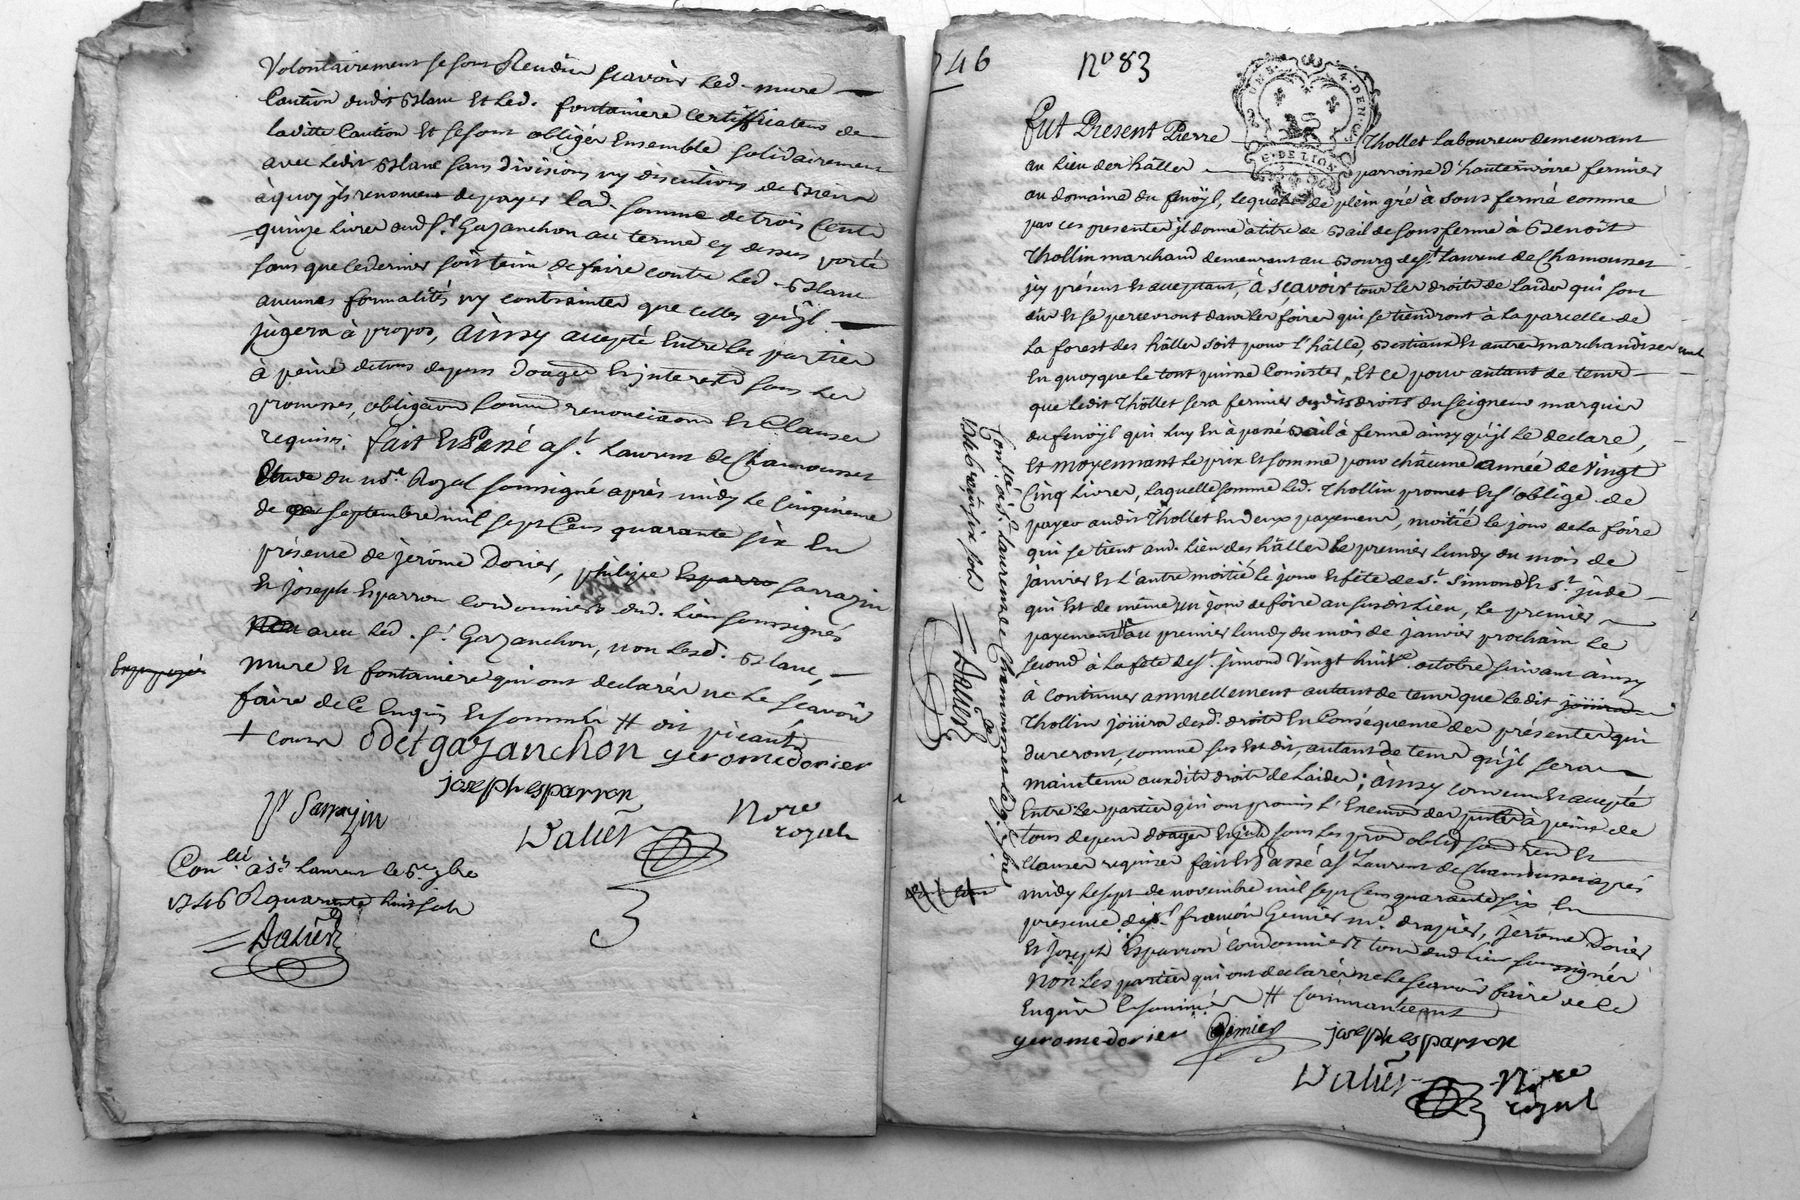 Volontairement se sont Rendus scavoir led. mure
Caution dudit Blanc et led. fontaniere certifficateur de
laditte Caution Et se sont obligés Ensemble solidairement
avec ledit Blanc sans divisions ny discutions de Biens
à quoy jls renoncent de payer lad. somme de trois Cents
quinze livres aud. Sr. Gazanchon au terme cy dessus porté
sans que ce dernier soit tenu de faire contre led. Blanc
aucunes formalités ny contraintes que celles qu'jl
jugera à propos, ainsy accepté Entre les parties
à peine de tous depens domages Et interests sous les
promesses, obligaôns soumôns renonciaôns et Clauses
requises. fait Et Passé a St. Laurent de Chamousset
Etude du nore. Royal soussigné après midy le cinqnieme
de septembre mil sept Cens quarante six En
présence de jerôme Dorier, philipe Esparro sarrazin
Et joseph Esparron cordonniers dud. lieu soussignés
avec led. Sr. Gazanchon, non lesd. Blanc,
mure Et fontaniere qui ont declarés ne le scavoir
faire de Ce Enquis Et sommés # dit picants
+ comme odet gazanchon yeromedorier
joseph esparron
P Sarrazin
Dalier
Nore
royal
Conllé à St. Laurent le 5e. 7bre
1746 R quarante huit sols
Dalier
746
No 83
G. DE LION
Fut Present Pierre Thollet Laboureur demeurant
au lieu des hâlles parroisse d'hauterivoire fermier
au domaine du fenoÿl, lequel de plein gré à sous fermé comme
par ces presentes jl donne à titre de Bail de sous ferme à Benoît
Thollin marchand demeurant au Bourg de St. Laurent de Chamousset
jcy présent Et acceptant, à sçavoir tous les droits de Laides qui sont
dûs Et se percevront dans les foires qui se tiendront à la parcelle de
la forest des hâlles soit pour l'hâlle, Bestiaux Et autres marchandises
En quoy que le tout puisse Consister, Et ce pour autant de tems
que ledit Thollet sera fermier desdits droits du seigneur marquis
du fenoÿl qui luy En à passé Bail à ferme ainsy qu'jl le declare,
Et moyennant le prix Et somme pour châcune année de Vingt
Cinq livres, laquelle somme led. Thollin promet Et s'oblige de
payer audit Thollet En deux payemens, moitié le jour de la foire
qui se tient aud. lieu des hâlles le premier lundy du mois de
janvier Et l'autre moitié le jour Et fête de St. Simond Et St. jude
qui Est de même un jour de foire au susdit lieu, le premier
payement au premier lundy du mois de janvier prochain le
second à la fête de St. simond Vingt huite. octobre suivant ainsy
à continuer annuellement autant de tems que ledit jouira
Thollin joüira desd. droits En Conséquence des présentes qui
dureront, comme sus Est dit, autant de tems qu'jl sera
maintenu auxdits droits de Laides; ainsy convenu Et accepté
Entre les parties qui ont promis l'Execuôn des pntes à peine de
tous depens domages Et jnts sous les prom oblig soum ren Et
Clauses requises fait Et Passé à St. Laurent de Chamousset après
midy le sept de novembre mil sept Cens quarante six En
presence de Sr. françois Gemier md. drapier, jerôme Dorier
Et joseph Esparron cordonniers tous dud. lieu soussignés
Non les parties qui ont declarés ne le scavoir faire de Ce
Enquis Et sommés #
yeromedorier Gemier joseph esparron
Dalier Nore
royal
Conllé à St. Laurent de Chamousset le 9bre
1746 R vingt six sols
Dalier